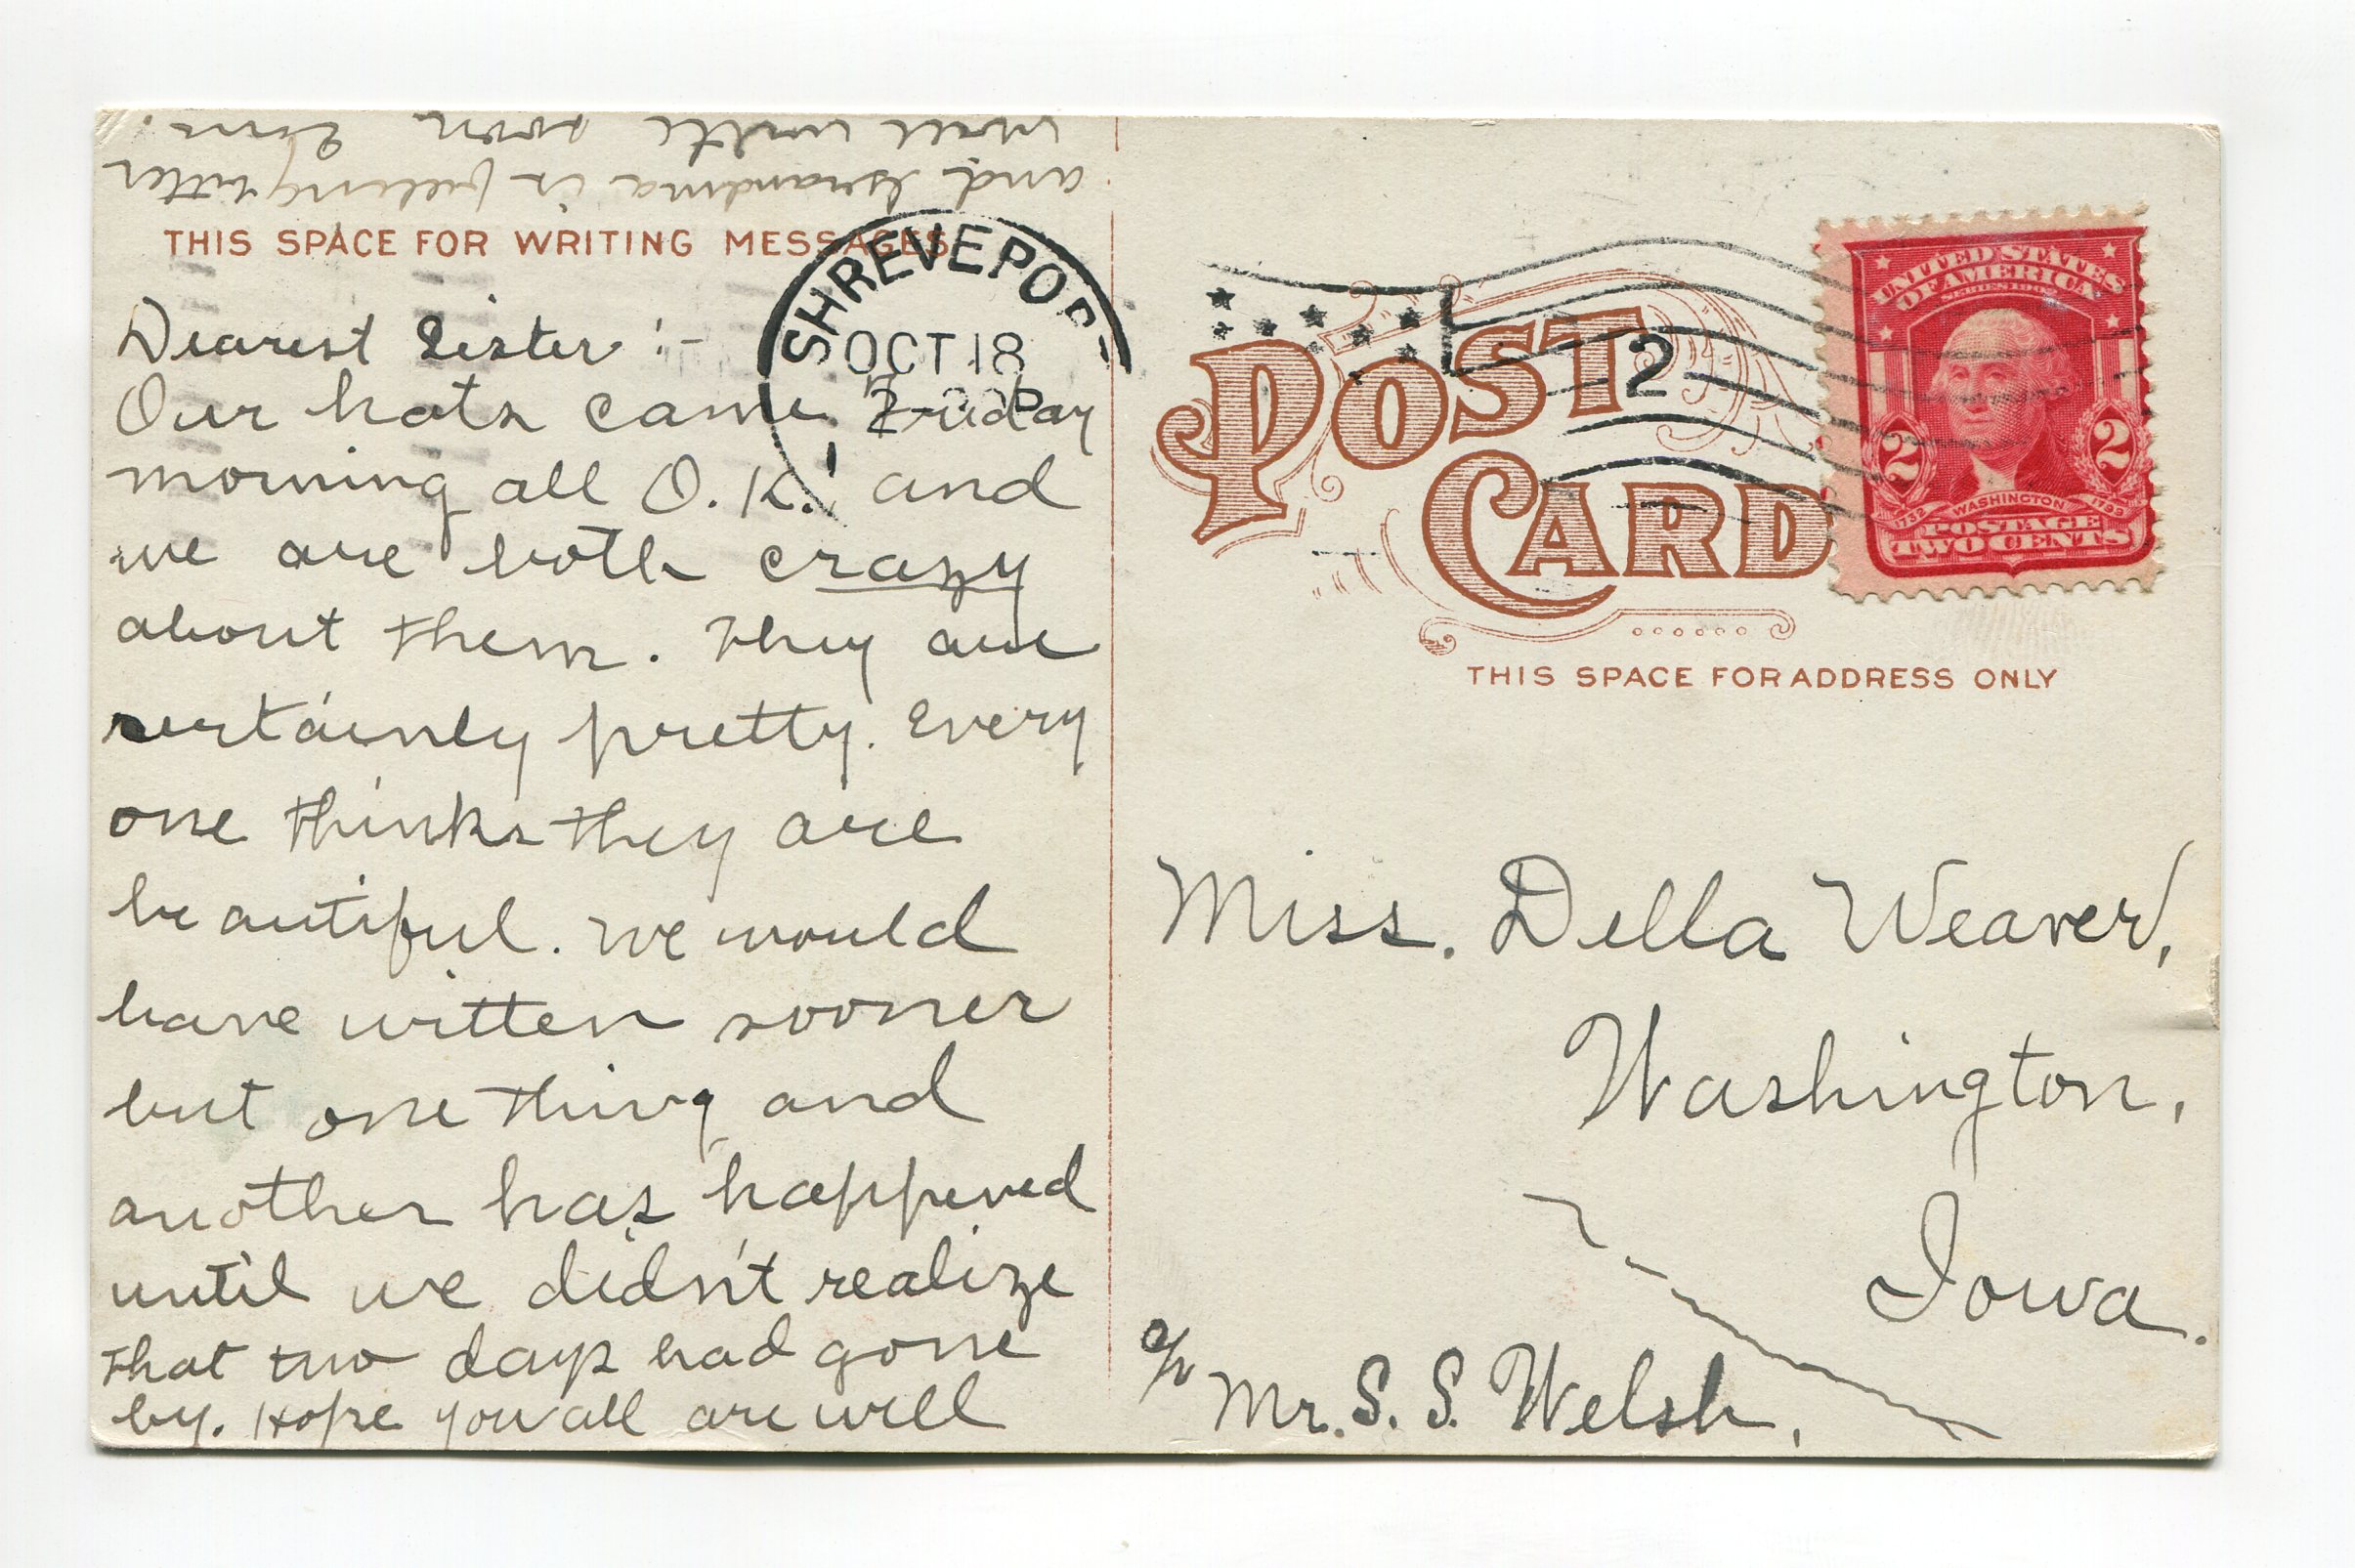 THIS SPACE FOR WRITING MESSAGES
Dearest Sister :-
Our hats came Friday
morning all O.K. and
we are both crazy
about them. They are
certainly pretty. Every
one thinks they are
beautiful. We would
have written sooner
but one thing and
another has happened
until we didn't realize
that two days had gone
by. Hope you all are well
and Grandma is feeling better
Will write soon
SHREVEPOR
OCT 18
2
POST
CARD
UNITED STATES
OF AMERICA
SERIES 1902
2 2
1732 WASHINGTON 1799
POSTAGE
TWO CENTS
THIS SPACE FOR ADDRESS ONLY
Miss. Della Weaver,
Washington,
Iowa.
c/o Mr. S. S. Welsh,